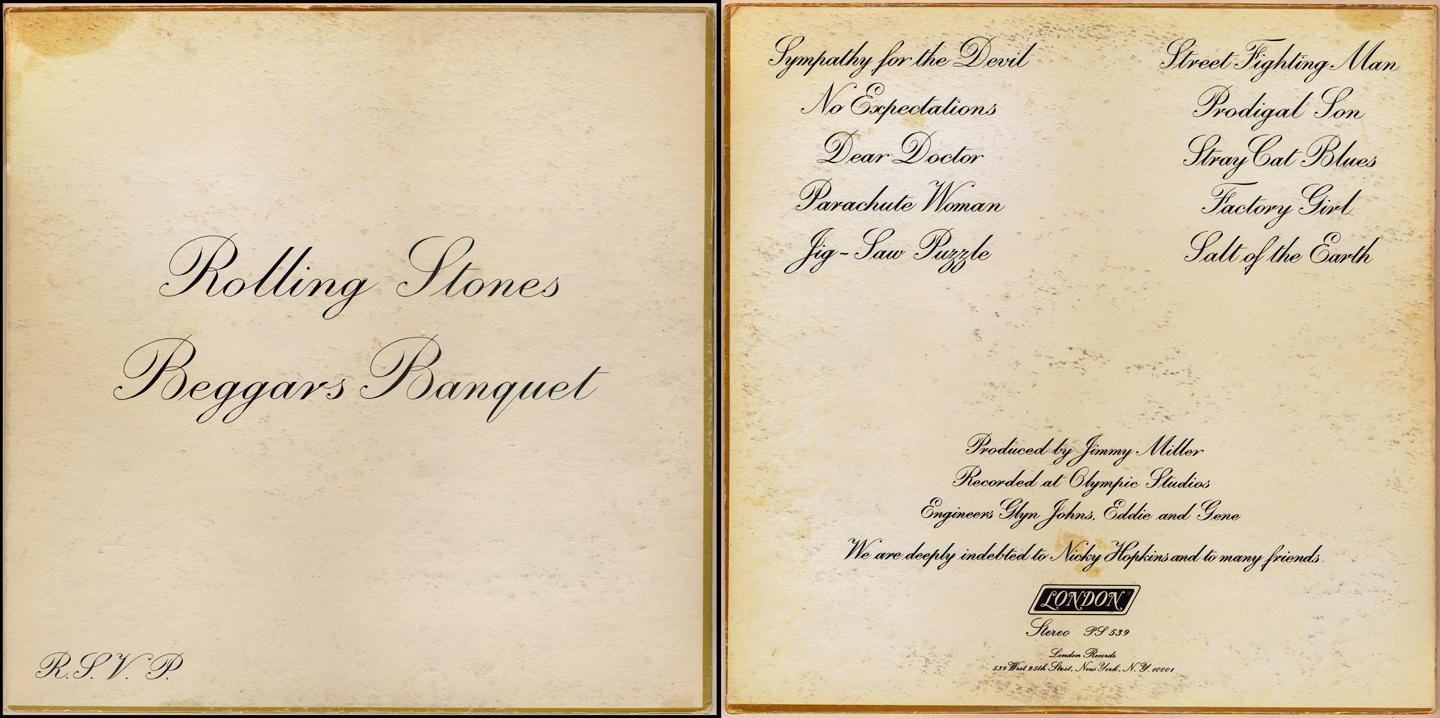 Rolling Stones
Beggars Banquet
R.S.V.P.
Sympathy for the Devil
No Expectations
Dear Doctor
Parachute Woman
Jig-Saw Puzzle
Street Fighting Man
Prodigal Son
Stray Cat Blues
Factory Girl
Salt of the Earth
Produced by Jimmy Miller
Recorded at Olympic Studios
Engineers Glyn Johns, Eddie and Gene
We are deeply indebted to Nicky Hopkins and to many friends
LONDON
Stereo PS 539
London Records
539 West 25th Street, New York, N.Y. 10001